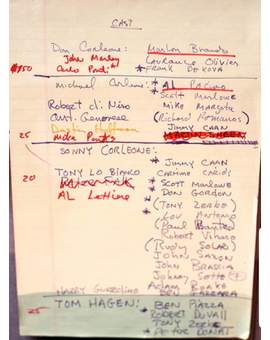 CAST
Don Corleone: Marlon Brando
John Marley Laurance Olivier
$150 Carlo Ponti * FRANK DEKOVA
Michael Corleone: * AL PACINO
Scott Marlowe
Robert di Niro Mike Margotta
Art. Genovese (Richard Romanos)
Jimmy CAAN
25 Mike
SONNY CORLEONE:
* Jimmy CAAN
20 TONY LO BIANCO * CARMINE CARIDI
* SCOTT MARLOWE
AL Lettieri DON GORDON
* (TONY ZERBO)
(Lou Antonio
(Paul Banteo
Robert Viharo
(Rudy SOLARI)
John SAXON
John BRASCIA
Johnny Sette
Adam Roake
HARRY GUARDINO BEN GAZZARA
TOM HAGEN: BEN PIAZZA
25 * ROBERT DUVALL
TONY ZERBE
* PETER DONAT